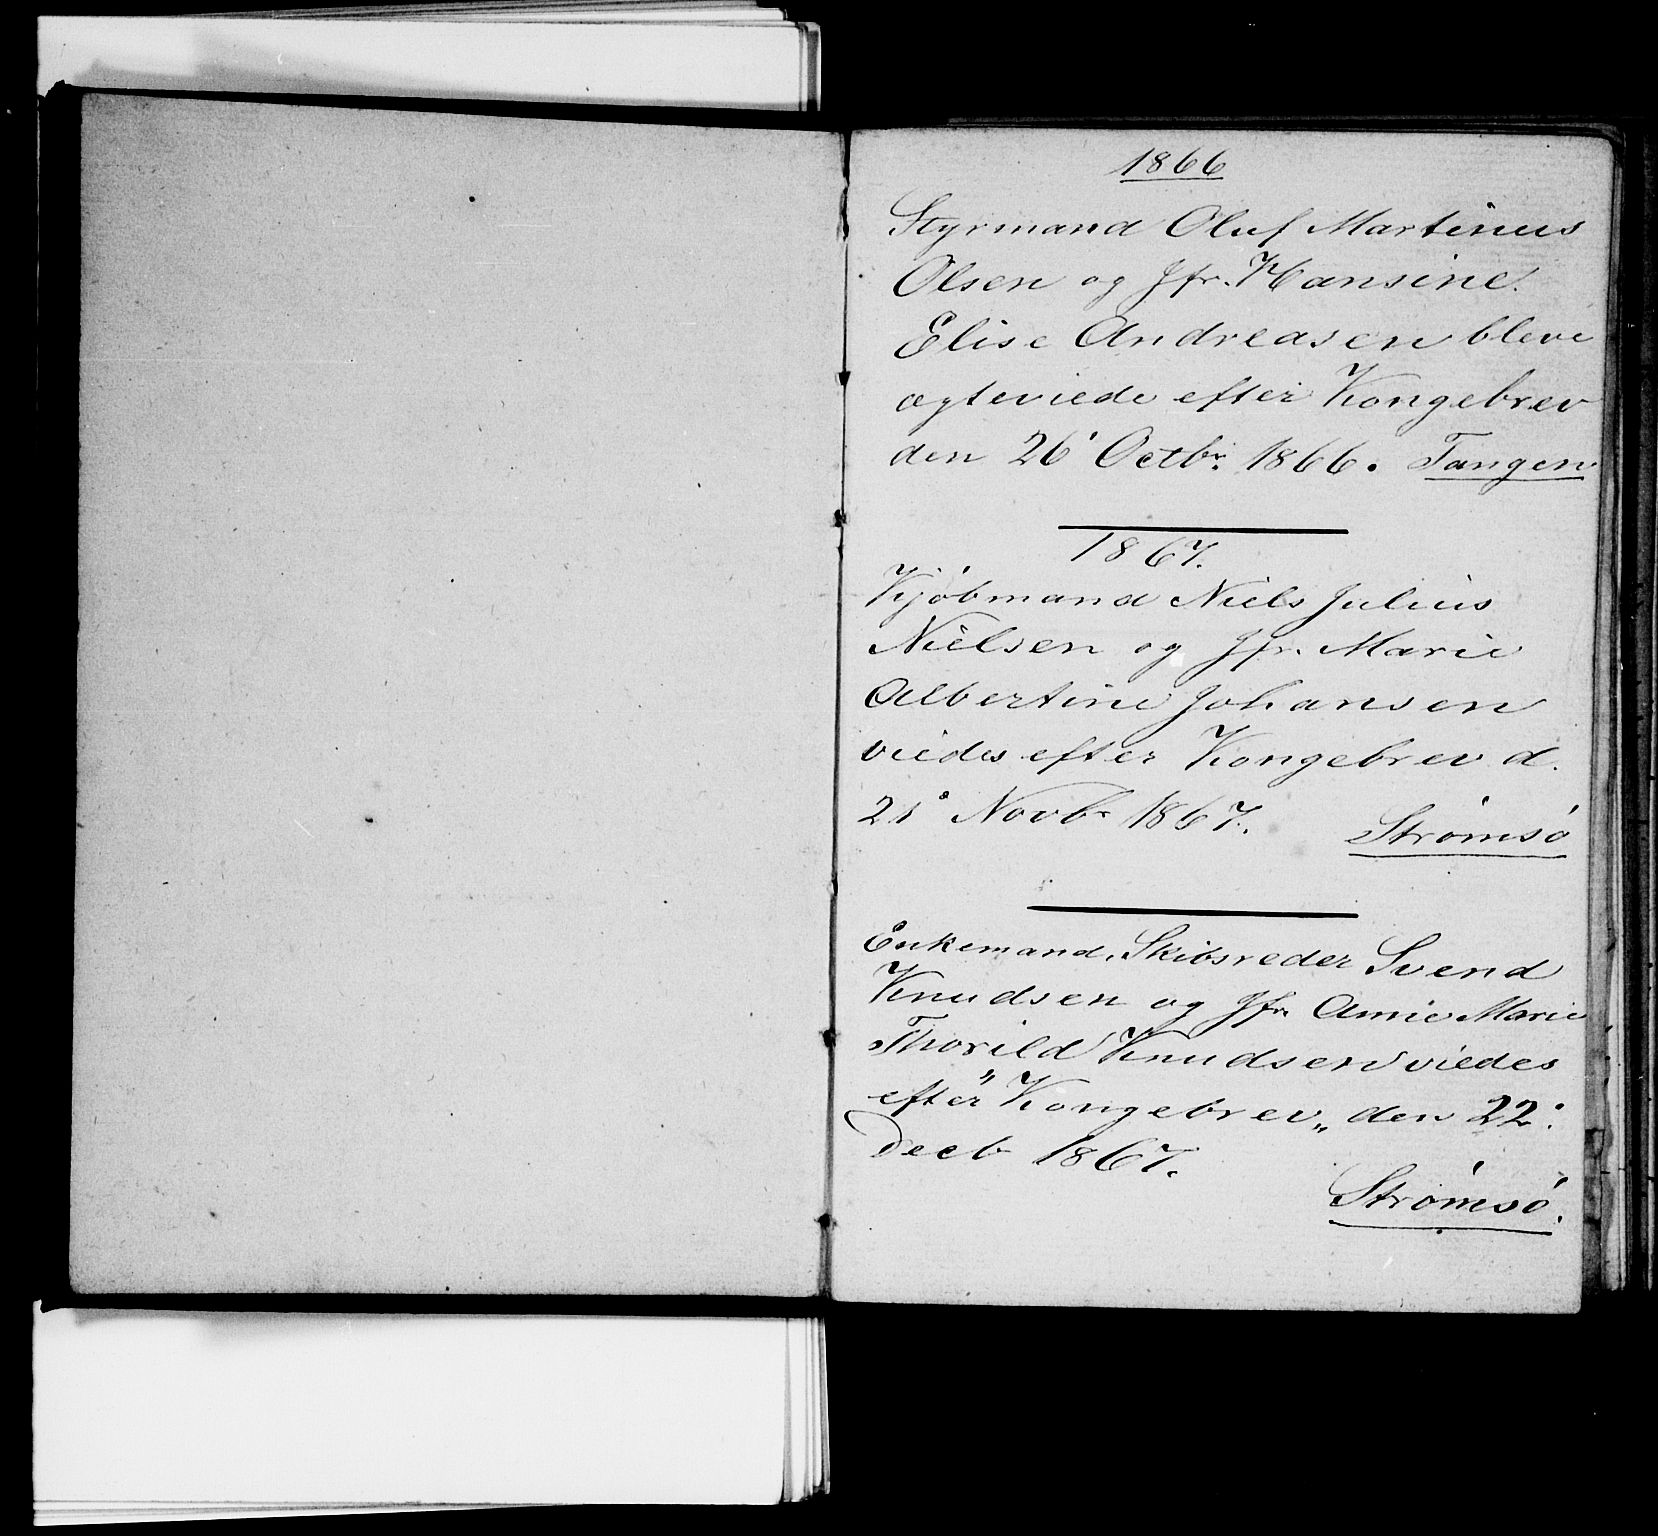 1866
Styrmand Oluf Martinus
Olsen og Jfr. Hansine
Elise Andreasen bleve
ægteviede efter Kongebrev
den 26' Octbr. 1866. Tangen
1867.
Kjøbmand Niels Julius
Nielsen og Jfr. Marie
Albertine Johansen
viedes efter Kongebrev d.
21' Novbr 1867. Strømsø
Enkemand, Skibsreder Svend
Knudsen og Jfr. Annie Marie
Thorild Knudsen viedes
efter "Kongebrev" den 22:
Decb 1867.
Strømsø.